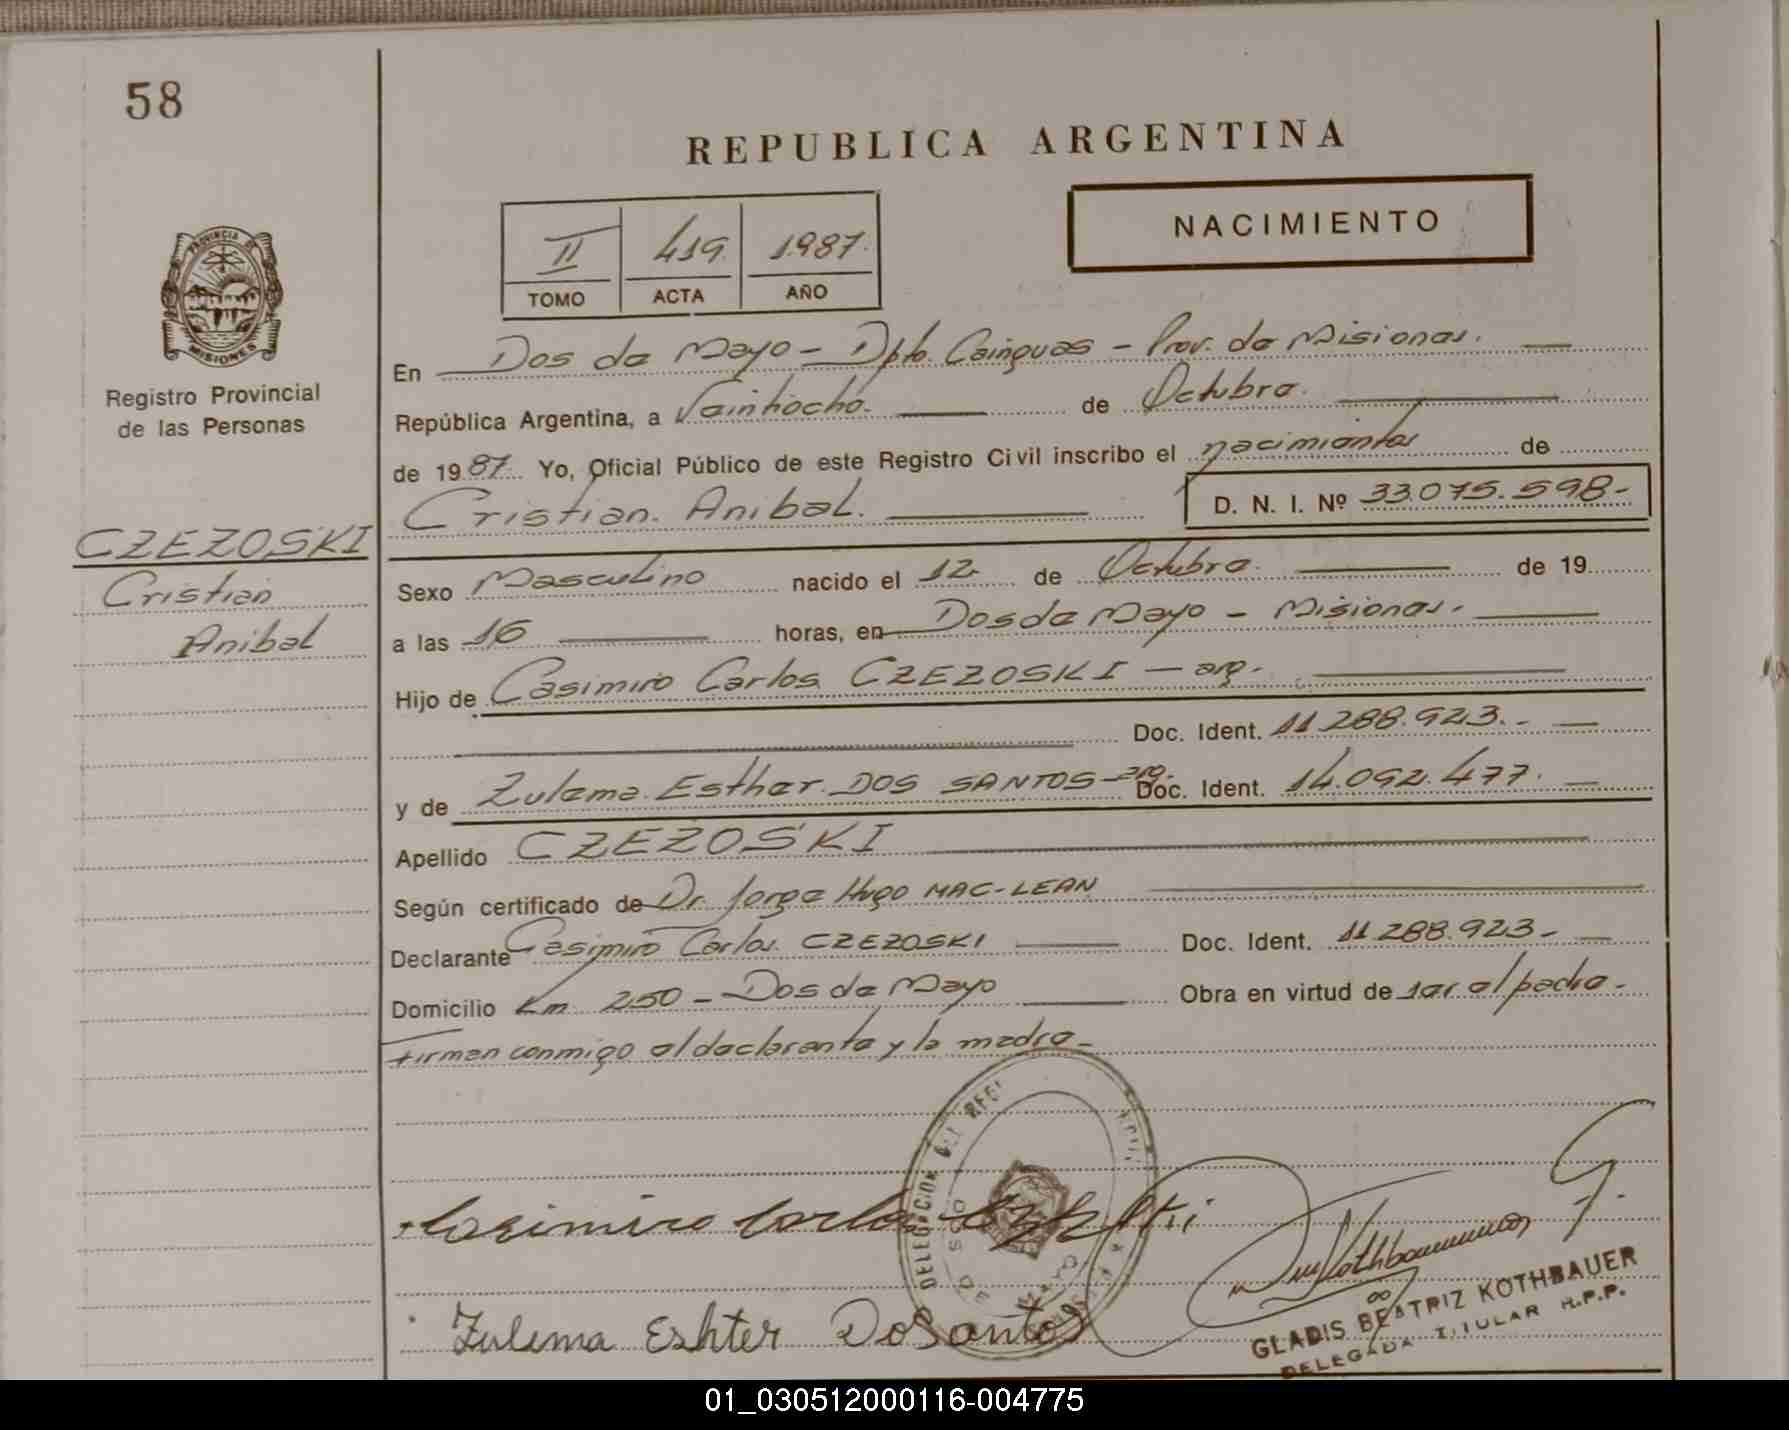 58
REPUBLICA ARGENTINA
NACIMIENTO
II 419. 1.987.
TOMO ACTA AÑO
PROVINCIA DE
MISIONES
Registro Provincial
de las Personas
En Dos de Mayo - Dpto. Cainguas - Prov. de Misiones.
República Argentina, a Veintiocho. de Octubre.
de 1987. Yo, Oficial Público de este Registro Civil inscribo el nacimiento de
Cristian. Anibal. D. N. I. Nº 33.075.598-
CZEZOSKI
Cristian
Anibal
Sexo Masculino nacido el 12 de Octubre. de 19
a las 16 horas, en Dos de Mayo - Misiones.
Hijo de Casimiro Carlos CZEZOSKI - arg.
Doc. Ident. 11.288.923.-
y de Zulema Esther DOS SANTOS - arg. Doc. Ident. 14.092.477.
Apellido CZEZOSKI
Según certificado de Dr. Jorge Hugo MAC-LEAN
Declarante Casimiro Carlos CZEZOSKI Doc. Ident. 11.288.923-
Domicilio Km 250 - Dos de Mayo Obra en virtud de ser el padre-
Firman conmigo el declarante y la madre-
DELEGACION DEL REGI
Casimiro Carlos
Zulema Eshter DoSantos
GLADIS BEATRIZ KOTHBAUER
DELEGADA TITULAR R.P.P.
01_030512000116-004775